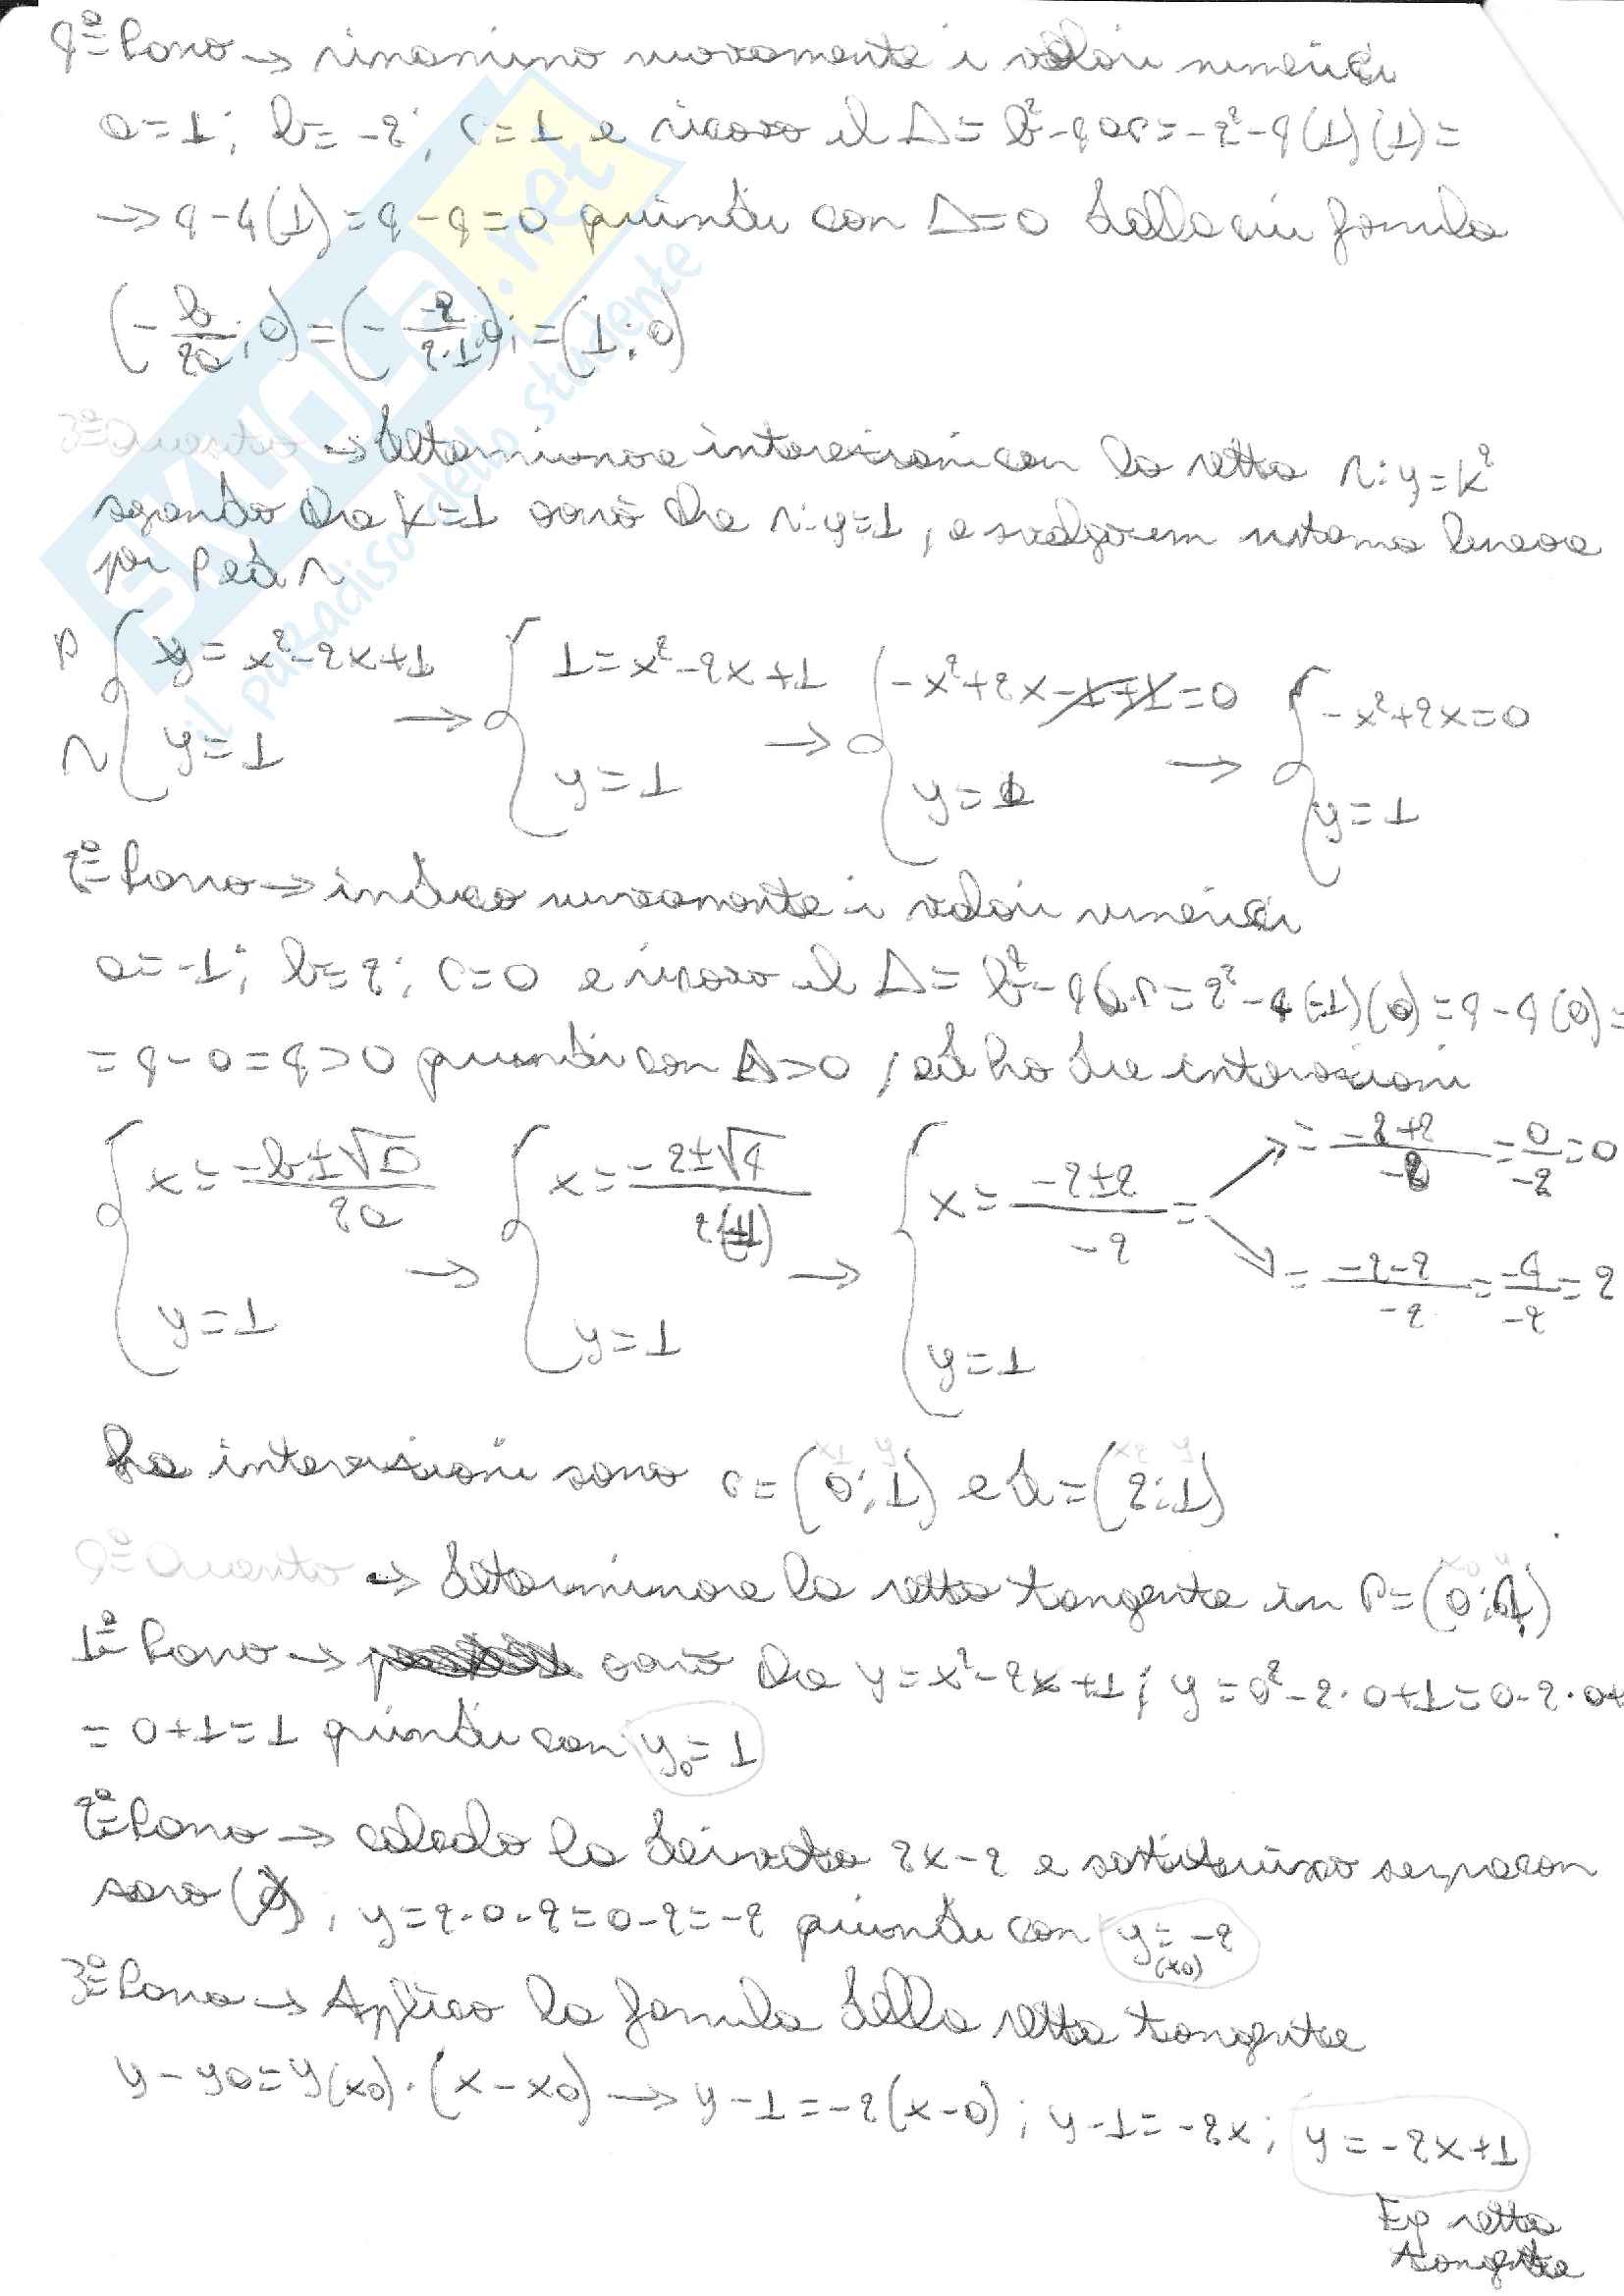 4º Passo → rinomino nuovamente i valori numerici
a=1; b=-2; c=1 e ricavo il Δ=b²-4ac=-2²-4(1)(1)=
→4-4(1)=4-4=0 quindi con Δ=0 dalla cui formula
(-b/2a;0)=(-−2/2·1;0);=(1;0)
3º Quesito → Determinare intersezioni con la retta r:y=k²
avrò che r:y=1, e svolgo un sistema lineare
per P ed r
P { y=x²-2x+1 → { 1=x²-2x+1 → { -x²+2x-1+1=0 → { -x²+2x=0
r y=1 y=1 y=1 y=1
2º Passo → indico nuovamente i valori numerici
a=-1; b=2; c=0 e ricavo il Δ=b²-4(a·c=2²-4(-1)(0)=4-4(0)=
=4-0=4>0 quindi con Δ>0, ed ho due intersezioni
{ x=-b±√Δ/2a → { x=-2±√4/2(-1) → { x=-2±2/-2= =-2+2/-2=0/-2=0
=-2-2/-2=-4/-2=2
y=1 y=1 y=1
Le intersezioni sono c=(0;1) e d=(2;1)
x1 y x2 y
4º Quesito → Determinare la retta tangente in P=(0;1)
1º Passo → avrò che y=x²-2x+1; y=0²-2·0+1=0-2·0+
=0+1=1 quindi con y0=1
2º Passo → calcolo la derivata 2x-2 e sostituisco sempre con
, y=2·0-2=0-2=-2 quindi con y(x0)=-2
3º Passo → Applico la formula della retta tangente
y-y0=y(x0)·(x-x0)→y-1=-2(x-0); y-1=-2x; y=-2x+1
Eq retta
tangente
SKUOLA.net
il paradiso dello studente